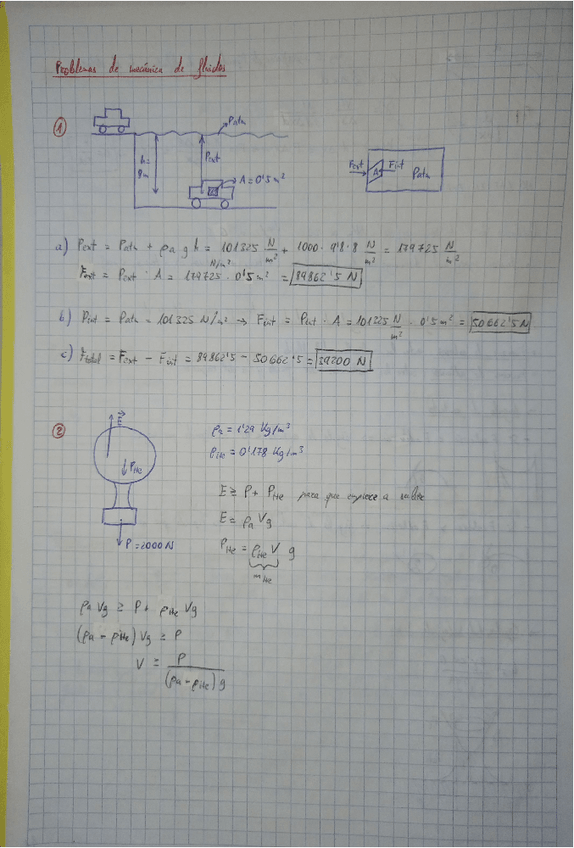 Problemas de mecánica de fluidos
1
Patm
h=
8m
Pext
A = 0'5 m²
Fext
A
Fint
Patm
a) Pext = Patm + ρa g h = 101325 N/m² + 1000 · 9'8 · 8 N/m² = 179725 N/m²
Fext = Pext · A = 179725 N/m² · 0'5 m² = 89862'5 N
b) Pint = Patm = 101325 N/m² → Fint = Pint · A = 101325 N/m² · 0'5 m² = 50662'5 N
c) Ftotal = Fext − Fint = 89862'5 − 50662'5 = 39200 N
2
E
PHe
P = 2000 N
ρa = 1'29 Kg/m³
ρHe = 0'178 Kg/m³
E ≥ P + PHe para que empiece a subir
E = ρa V g
PHe = ρHe V g
mHe
ρa Vg ≥ P + ρHe Vg
(ρa − ρHe) Vg ≥ P
V ≥ P / (ρa − ρHe) g